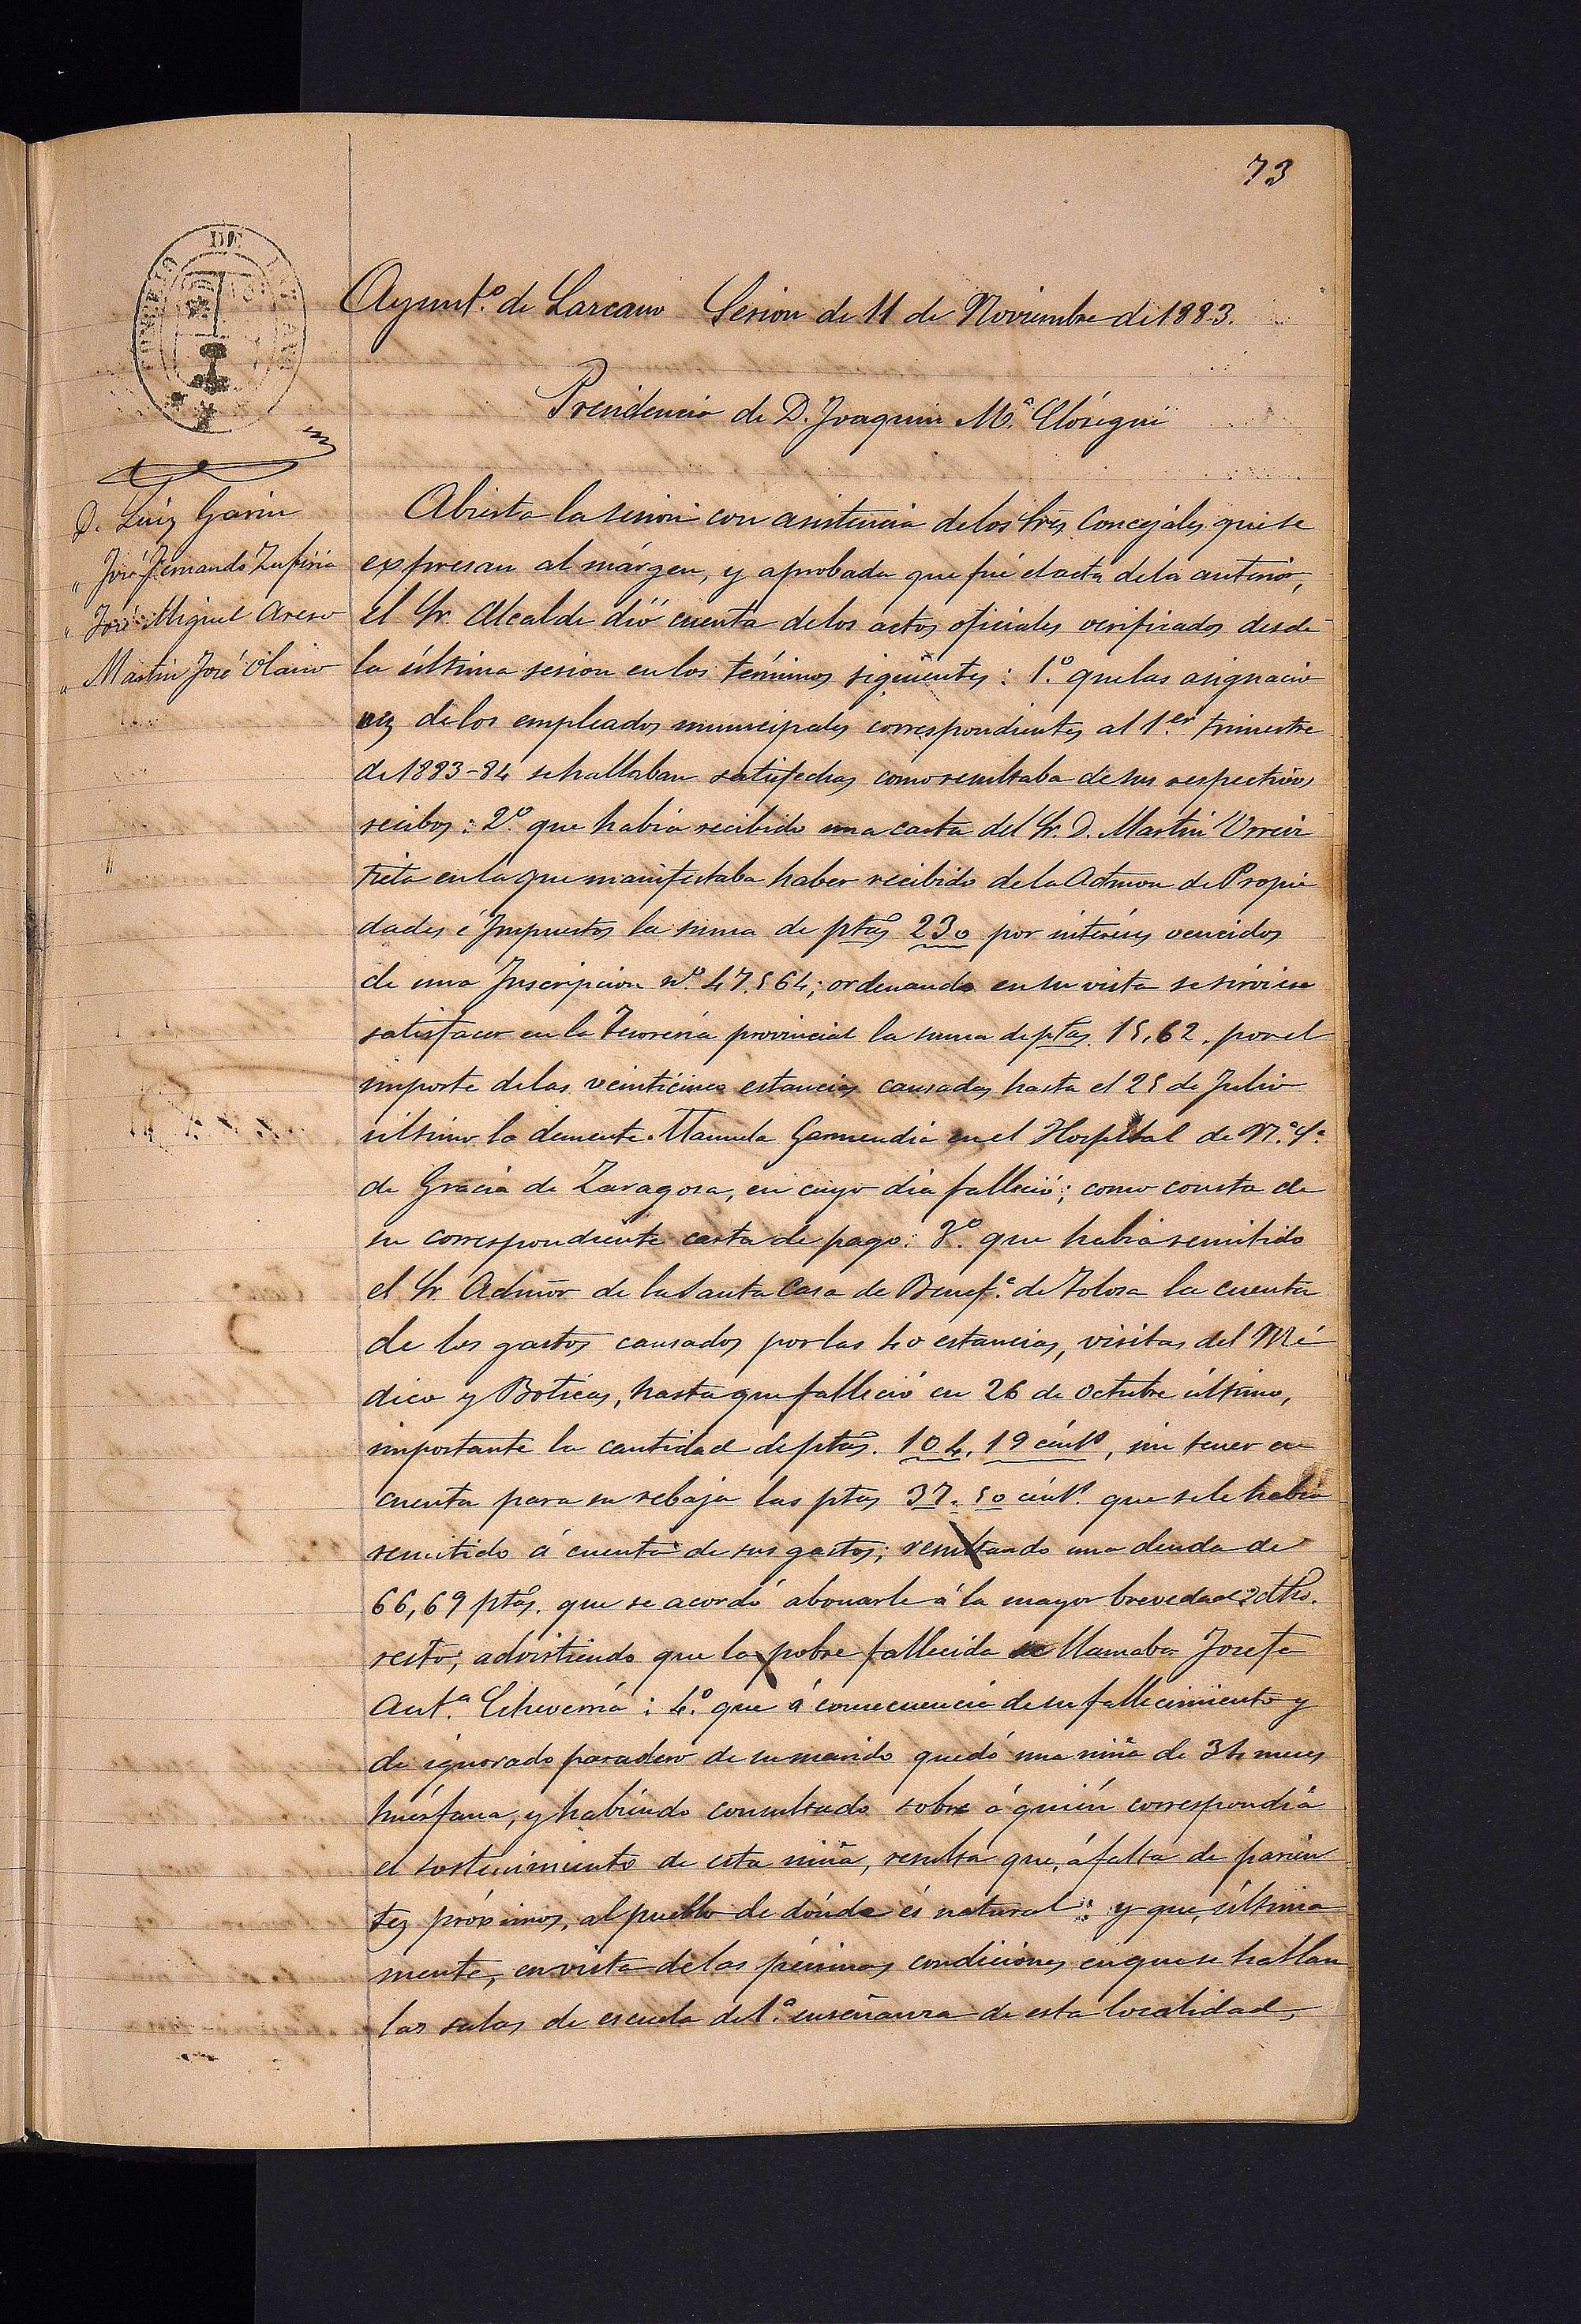 73
CONCEJO DE LAZCANO
Ayunt.º de Lazcano Sesion de 11 de Noviembre de 1883.
Presidencia de D. Joaquin M.ª Elósegui
D. Luiz Garin
" José Fernando Zufiria
" José Miguel Areso
" Martin José Olano
Abierta la sesion con asistencia de los Srẽs Concejáles que se
expresan al márgen, y aprobada que fué el acta de la anterior,
el Sr. Alcalde dió cuenta de los actos oficiales verificados desde
la última sesion en los términos siguientes: 1.º que las asignacio
nes de los empleados municipales correspondientes al 1.er trimestre
de 1883-84 se hallaban satisfechas como resultaba de sus respectivos
recibos: 2.º que habia recibido una carta del Sr. D. Martin Urreiz
tieta en la que manifestaba haber recibido de la Admon de Propie
dades é Impuestos la suma de ptas 230 por intereses vencidos
de una Inscripcion n.º 47.564; ordenando en su vista se sirviese
satisfacer en la Tesoreria provincial la suma de ptas. 15,62. por el
importe de las veinticinco estancias causadas hasta el 25 de Julio
último la demente Manuela Garmendia en el Hospital de N.ª S.ª
de Gracia de Zaragoza, en cuyo dia falleció; como consta de
su correspondiente carta de pago: 3.º que habia remitido
el Sr. Admõr de la Santa Casa de Benef.ª de Tolosa la cuenta
de los gastos causados por las 40 estancias, visitas del Mé
dico y Boticas, hasta que falleció en 26 de octubre último,
importante la cantidad de ptas. 104, 19 cints, sin tener en
cuenta para su rebaja las ptas 37. 50 cints. que se le habia
remitido á cuenta de sus gastos; resultando una deuda de
66,69 ptas. que se acordó abonarle á la mayor brevedad dho.
resto; advirtiendo que la pobre fallecida se llamaba Josefa
Ant.ª Echeverria: 4.º que á consecuencia de su fallecimiento y
de ignorado paradero de su marido quedó una niña de 34 meses
huérfana, y habiendo consultado sobre á quién correspondia
el sostenimiento de esta niña, resulta que, á falta de parien
tes próximos, al pueblo de dónde és natural: y que, última
mente, en vista de las pésimas condiciones en que se hallan
las salas de escuela de 1.ª enseñanza de esta localidad,